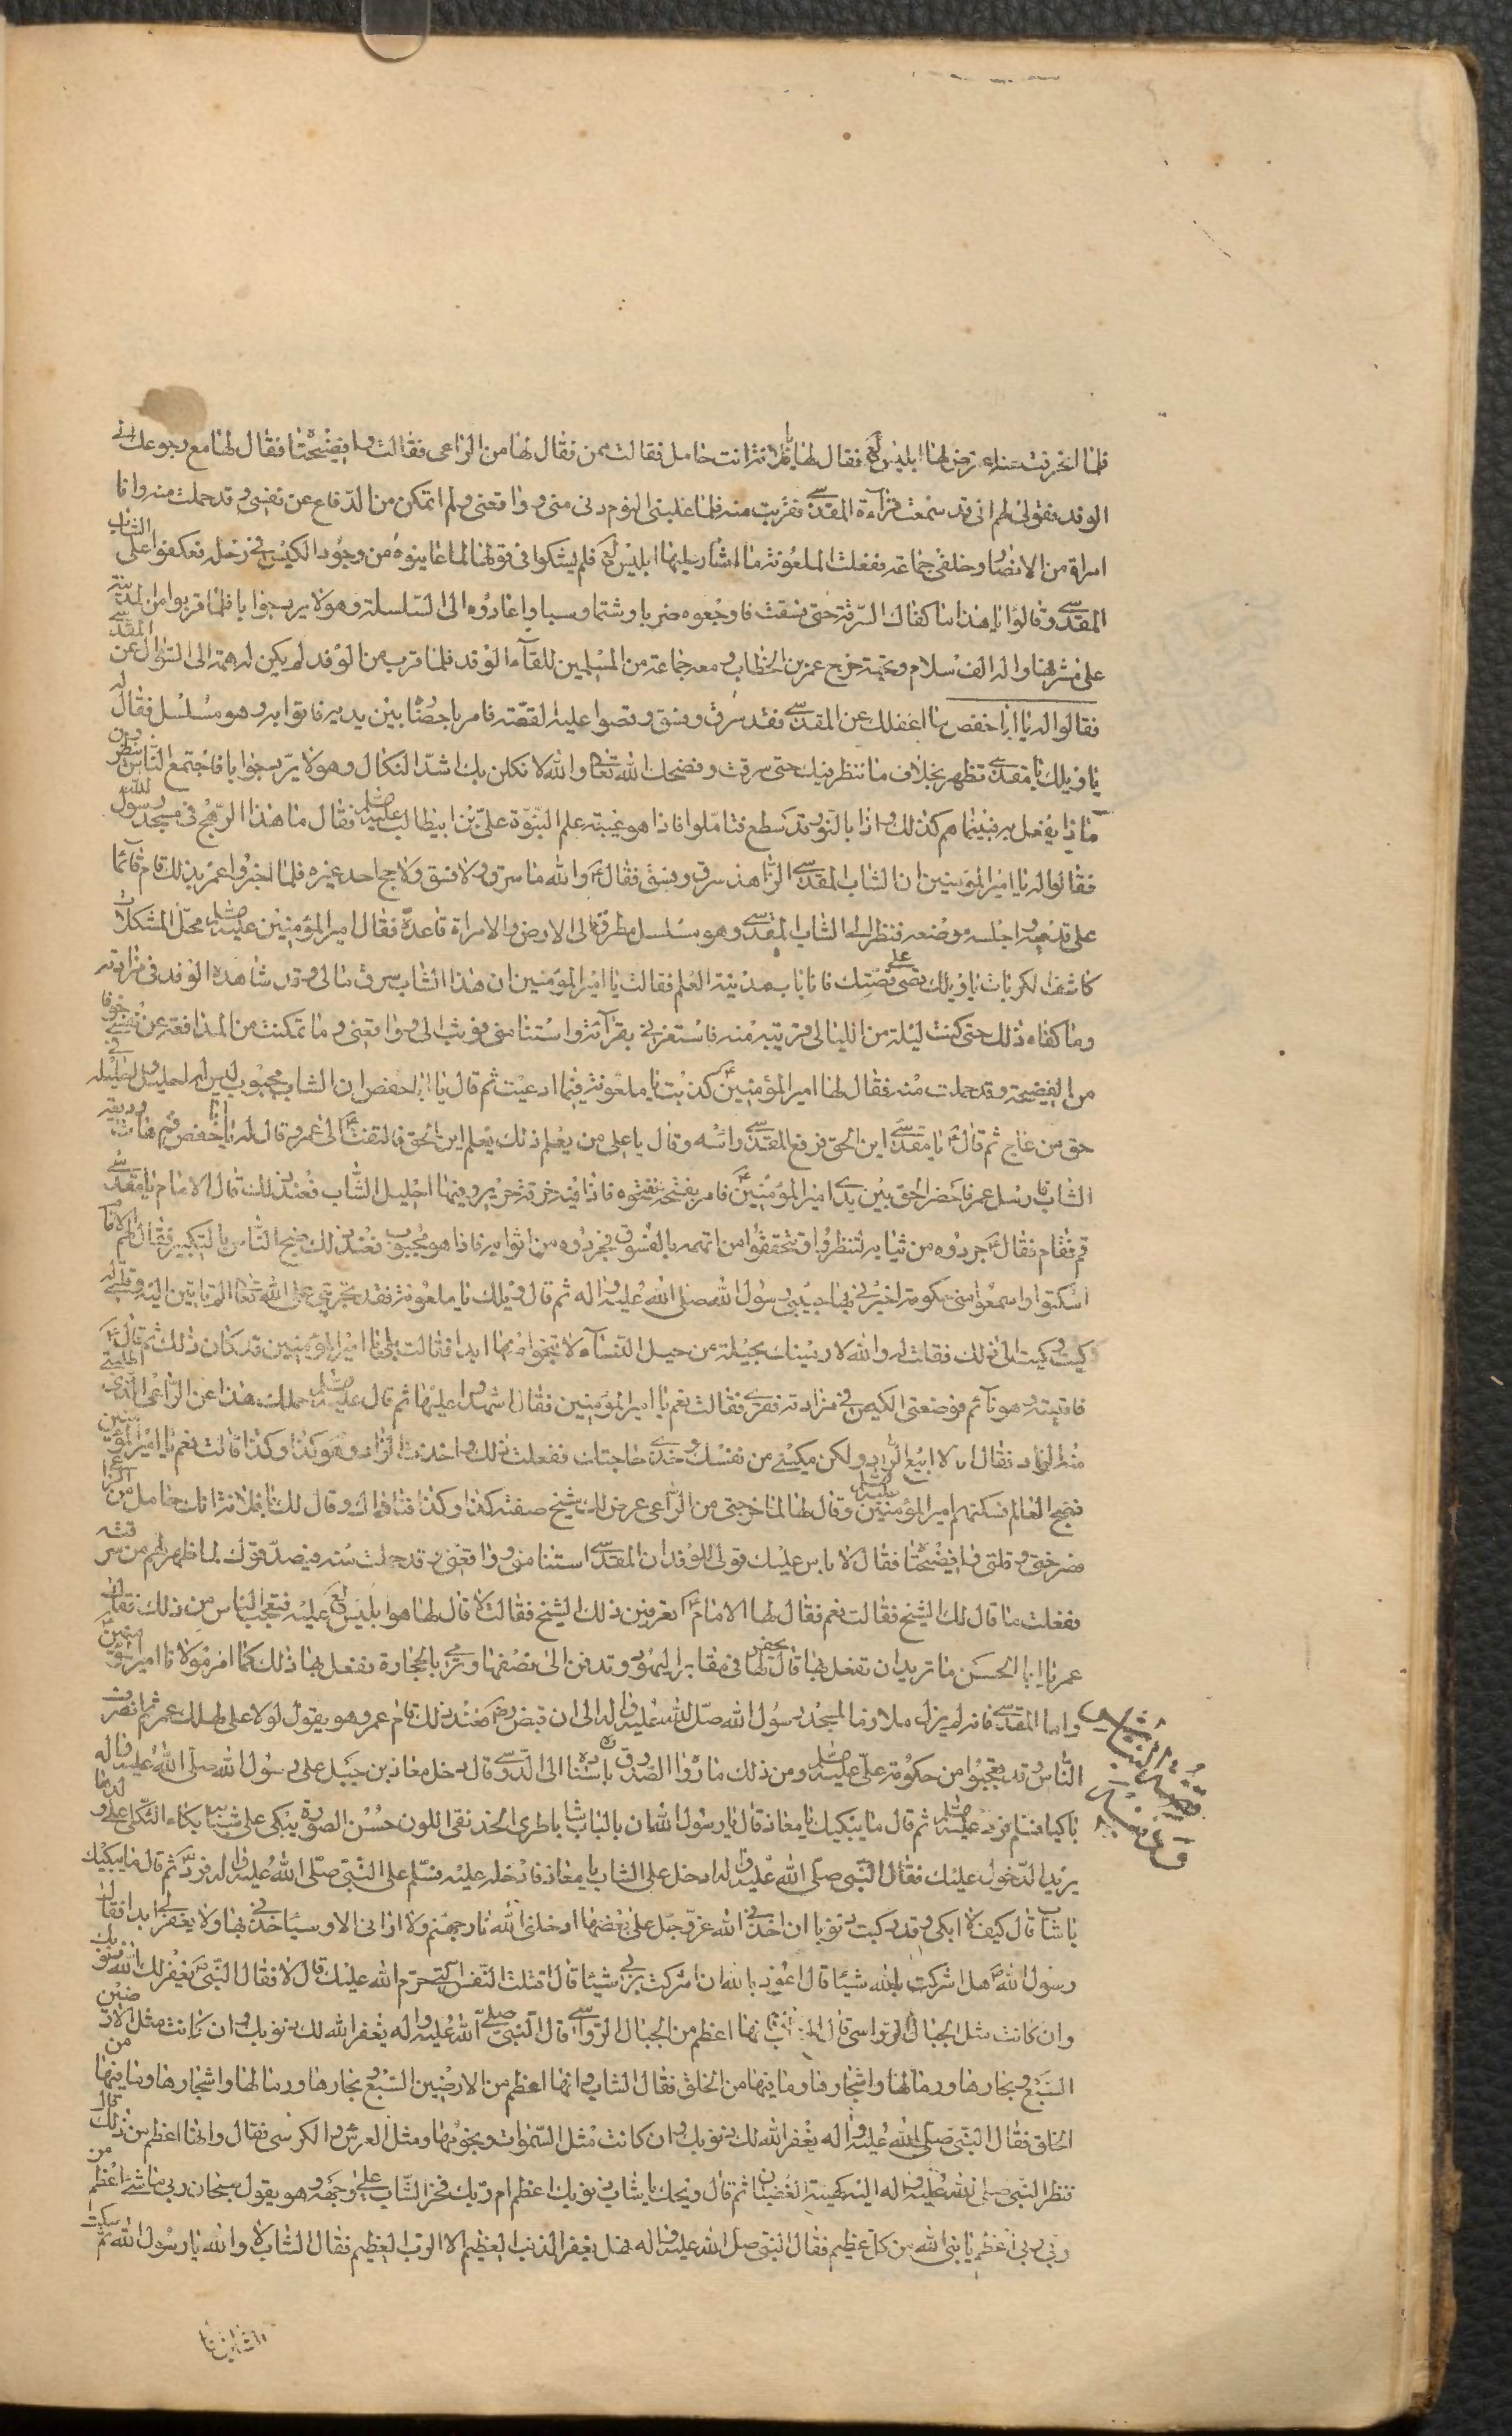 فلما انحرفت عنه اعترض لها ابليس لع فقال لها يا فلانة انت حامل فقالت ممن فقال لها من الراعي فقالت وا فضيحتاه فقال لها مع رجوعك الى
الوفد فقولي لهم اني قد سمعت قراءة المقدسي فقربت منه فلما غلبني النوم دنى مني وواقعني ولم اتمكن من الدفاع عن نفسي وقد حملت منه وانا
امراة من الانصار وخلفي جماعة ففعلت الملعونة ما اشار عليها ابليس لع فلم يشكوا في قولها لما عاينوه من وجود الكيس في رحله فعكفوا على الشاب
المقدسي وقالوا يا هذا ما كفاك السرقة حتى فسقت فاوجعوه ضربا وشتما وسبا واعادوه الى السلسلة وهو لا يرد جوابا فلما قربوا من المدينة
على مشرفها واله الف سلام وتحية خرج عمر بن الخطاب ومعه جماعة من المسلمين للقاء الوفد فلما قرب من الوفد لم يكن له همة الى السؤال عن المقدسي
فقالوا له يا ابا حفص ما اغفلك عن المقدسي فقد سرق وفسق وقصوا عليه القصة فامر باحضاره بين يديه فاتوا به وهو مسلسل فقال له
يا ويلك يا مقدسي تظهر بخلاف ما تنظر فيك حتى سرقت وفضحك الله تعالى والله لانكلن بك اشد النكال وهو لا يرد جوابا فاجتمع الناس ينظرون
ماذا يفعل به فبينما هم كذلك واذا بالنور قد سطع فتاملوا فاذا هو عيبة علم النبوة علي بن ابيطالب عليه فقال ما هذا الرهج في مسجد رسول الله
فقالوا له يا امير المؤمنين ان الشاب المقدسي الزاهد سرق وفسق فقال والله ما سرق ولا فسق ولا حج احد غيره فلما اخبروا عمر بذلك قام قائما
على قدميه واجلسه موضعه فنظر الى الشاب المقدسي وهو مسلسل مطرق الى الارض والامراة قاعدة فقال امير المؤمنين عليه محل المشكلات
كاشف الكربات يا ويلك قصي علي قصتك فانا باب مدينة العلم فقالت يا امير المؤمنين ان هذا الشاب سرق مالي وقد شاهده الوفد في مزادته
وما كفاه ذلك حتى كنت ليلة من الليالي قريبة منه فاستغرني بقراءته واستنامني فوثب الي وواقعني وما تمكنت من المدافعة عن نفسي خوفا
من الفضيحة وقد حملت منه فقال لها امير المؤمنين كذبت يا ملعونة فيما ادعيت ثم قال يا ابا حفص ان الشاب مجبوب ليس له احليل واحليله في
حق من عاج ثم قال يا مقدسي اين الحق فرفع المقدسي راسه وقال يا علي من يعلم ذلك يعلم اين الحق فالتفت الى عمر وقال له يا ابا حفص قم هات وديعة
الشاب فارسل عمر فاحضر الحق بين يدي امير المؤمنين فامر بفتحه ففتحوه فاذا فيه خرقة حرير وفيها احليل الشاب فعند ذلك قال الامام يا مقدسي
قم فقام فقال جردوه من ثيابه لتنظروا وتحققوا من اتهمه بالفسوق فجردوه من اثوابه فاذا هو مجبوب فعند ذلك ضج الناس بالتكبير فقال لهم
اسكتوا واسمعوا مني حكومة اخبرني بها حبيبي رسول الله صلى الله عليه واله ثم قال ويلك يا ملعونة فقد تجريتي على الله تعالى الم تاتين اليه وقلت له
كيت وكيت الى ذلك فقلت له والله لارمينك بحيلة من حيل النساء لا تنجوا منها ابدا فقالت بلى يا امير المؤمنين قد كان ذلك ثم قال
فاتيته وهو نائم فوضعتي الكيس في مزادته قري فقالت نعم يا امير المؤمنين فقال اشهدوا عليها ثم قال عليه حملك هذا عن الراعي الذي
منه الزاد فقال لا ابيع الزاد ولكن مكنيني من نفسك وخذي حاجتك ففعلت ذلك واخذت الزاد وهو كذا وكذا قالت نعم يا امير المؤمنين
فضج العالم فسكتهم امير المؤمنين عليه وقال لها لما خرجتي من الراعي عرض لك شيخ صفته كذا وكذا فناداك وقال لك يا فلانة انك حامل من الراعي
فصرختي وقلتي وا فضيحتاه فقال لا باس عليك قولي للوفد ان المقدسي استنامني وواقعني وقد حملت منه فيصدقوك لما ظهر لهم من سرقته
ففعلت ما قال لك الشيخ فقالت نعم فقال لها الامام اتعرفين ذلك الشيخ فقالت لا قال لها هو ابليس لع عليه فتعجب الناس من ذلك فقال
عمر يا ابا الحسن ما تريد ان تفعل بها قال يحفر لها في مقابر اليهود وتدفن الى نصفها وترجم بالحجارة ففعل بها ذلك كما امر مولانا امير المؤمنين
واما المقدسي فانه لم يزل ملازما المسجد رسول الله صلى الله عليه واله الى ان قبض رض فعند ذلك قام عمر وهو يقول لولا علي لهلك عمر ثم انصرف
الناس وقد تعجبوا من حكومة علي عليه ومن ذلك ما رواه الصدوق باسناده الى الدوسي قال دخل معاذ بن جبل على رسول الله صلى الله عليه واله
باكيا فسلم فرد عليه ثم قال ما يبكيك يا معاذ قال يا رسول الله ان بالباب شابا طرى الخد نقي اللون حسن الصورة يبكي على شبابه بكاء الثكلى على ولدها
يريد الدخول عليك فقال النبي صلى الله عليه واله ادخل علي الشاب يا معاذ فادخله عليه فسلم على النبي صلى الله عليه واله فرد ثم قال ما يبكيك
يا شاب قال كيف لا ابكي وقد ركبت ذنوبا ان اخذني الله عز وجل على بعضها ادخلني الله نار جهنم ولا اراني الا وسياخذني بها ولا يغفر لي ابدا فقال
رسول الله هل اشركت بالله شيئا قال اعوذ بالله ان اشركت بربي شيئا قال اقتلت النفس التي حرم الله عليك قال لا فقال النبي يغفر لك الله ذنوبك
وان كانت مثل الجبال الرواسي قال الشاب فانها اعظم من الجبال الرواسي قال النبي صلى الله عليه واله يغفر الله لك ذنوبك وان كانت مثل الارضين
السبع وبحارها ورمالها واشجارها وما فيها من الخلق فقال الشاب وانها اعظم من الارضين السبع وبحارها ورمالها واشجارها وما فيها من
الخلق فقال النبي صلى الله عليه واله يغفر الله لك ذنوبك وان كانت مثل السموات ونجومها ومثل العرش والكرسي فقال وانها اعظم من ذلك قال
فنظر النبي صلى الله عليه واله اليه كهيئة الغضبان ثم قال ويحك يا شاب ذنوبك اعظم ام ربك فخر الشاب على وجهه وهو يقول سبحان ربي ما شئ اعظم من
ربي ربي اعظم يا نبي الله من كل عظيم فقال النبي صلى الله عليه واله فهل يغفر الذنب العظيم الا الرب العظيم فقال الشاب لا والله يا رسول الله ثم سكت
الشاب